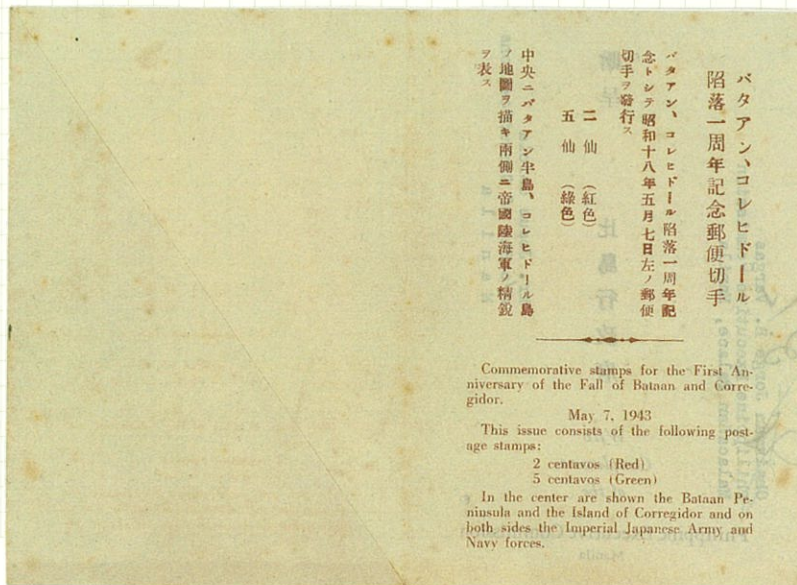 バタアン、コレヒドール
陥落一周年記念郵便切手
バタアン、コレヒドール陥落一周年記
念トシテ昭和十八年五月七日左ノ郵便
切手ヲ發行ス
二仙 （紅色）
五仙 （綠色）
中央ニバタアン半島、コレヒドール島
ノ地圖ヲ描キ兩側ニ帝國陸海軍ノ精銳
ヲ表ス
Commemorative stamps for the First An-
niversary of the Fall of Bataan and Corre-
gidor.
May 7, 1943
This issue consists of the following post-
age stamps:
2 centavos (Red)
5 centavos (Green)
In the center are shown the Bataan Pe-
ninsula and the Island of Corregidor and on
both sides the Imperial Japanese Army and
Navy forces.